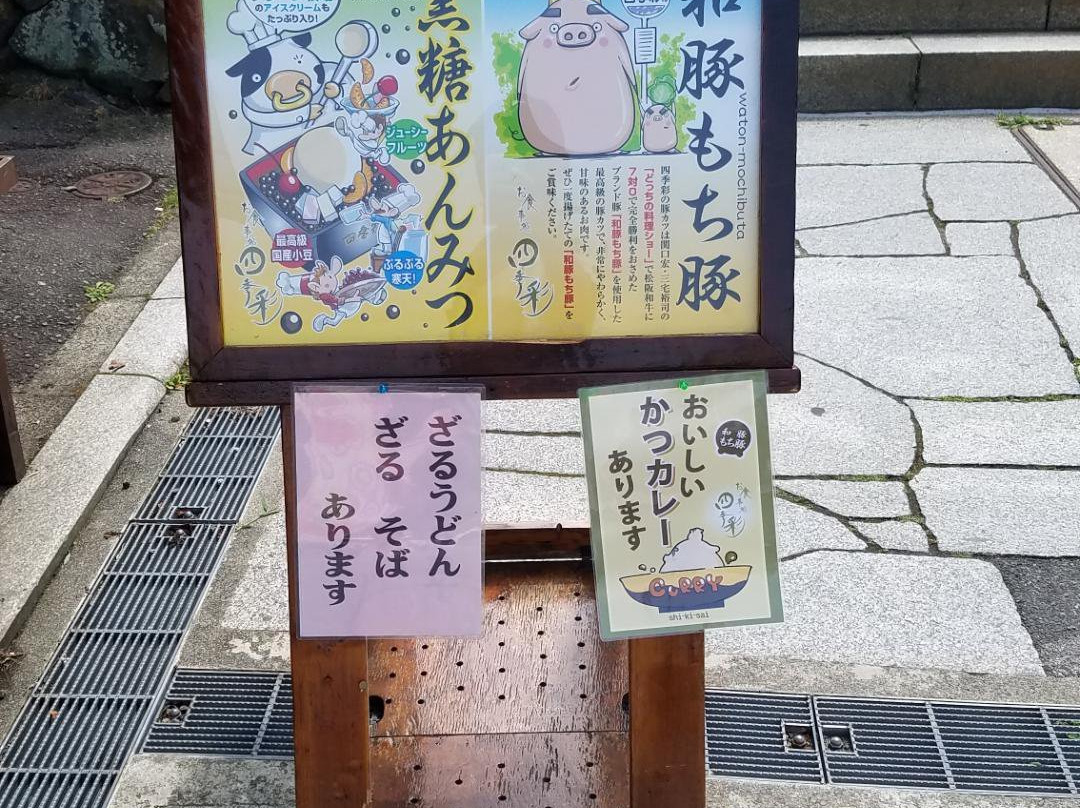 のアイスクリームも
たっぷり入り!
黒糖あんみつ
ジューシー
フルーツ
最高級
国産小豆
ぷるぷる
寒天!
お食事処
四季彩
和豚もち豚
waton-mochibuta
四季彩の豚カツは関口宏・三宅裕司の
「どっちの料理ショー」で松阪和牛に
7対0で完全勝利をおさめた
ブランド豚「和豚もち豚」を使用した
最高級の豚カツで、非常にやわらかく、
甘味のあるお肉です。
ぜひ一度揚げたての「和豚もち豚」を
ご賞味ください。
お食事処
四季彩
ざるうどん
ざる そば
あります
おいしい
かつカレー
あります
和豚
もち豚
お食事処
四季彩
CURRY
shi-ki-sai